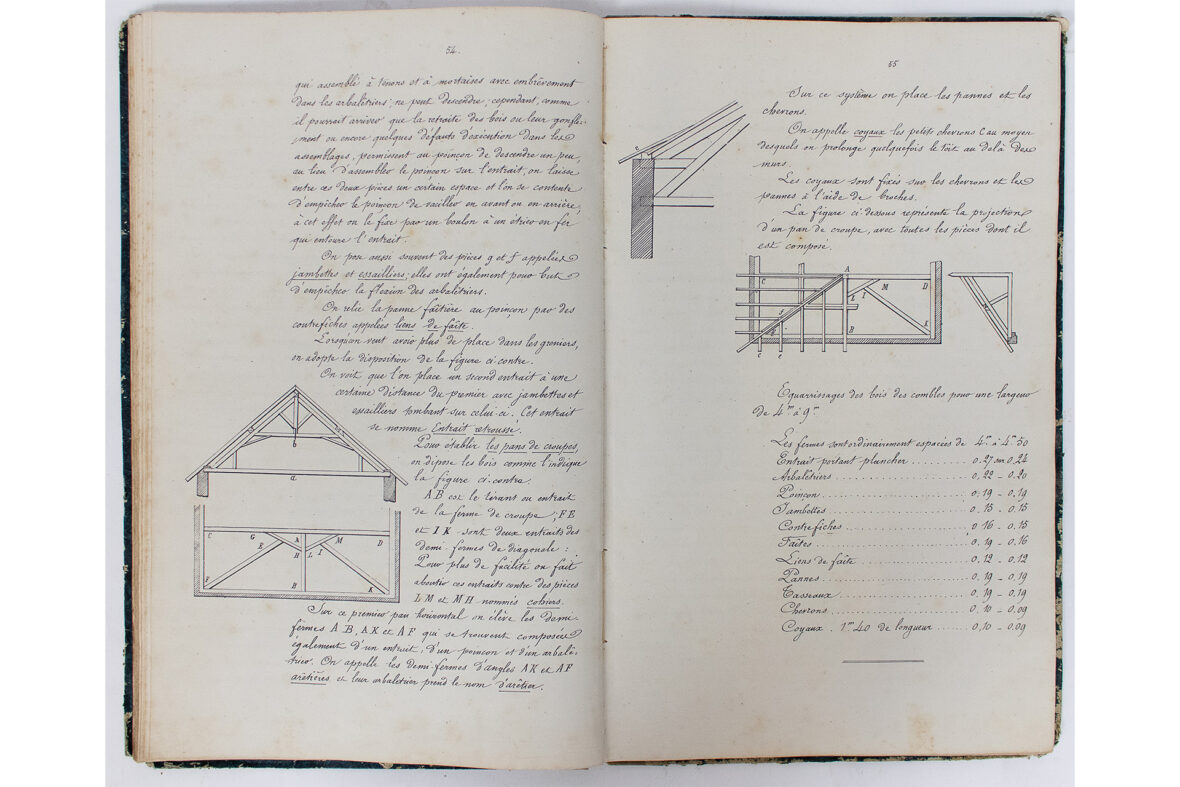 54.
qui assemblé à tenons et à mortaises avec embrèvement
dans les arbalétriers, ne peut descendre, cependant, comme
il pourrait arriver que la retraite des bois ou leur gonfle-
ment ou encore quelques défauts d'exécution dans les
assemblages, permissent au poinçon de descendre un peu,
au lieu d'assembler le poinçon sur l'entrait, on laisse
entre ces deux pièces un certain espace et l'on se contente
d'empêcher le poinçon de vaciller en avant ou en arrière,
à cet effet on le fixe par un boulon à un étrier en fer
qui entoure l'entrait.
On pose aussi souvent des pièces g et f appelées
jambettes et essailliers; elles ont également pour but
d'empêcher la flexion des arbalétriers.
On relie la panne faîtière au poinçon par des
contrefiches appelées liens de faîte.
Lorsqu'on veut avoir plus de place dans les greniers,
on adopte la disposition de la figure ci-contre.
On voit que l'on place un second entrait à une
certaine distance du premier avec jambettes et
essailliers tombant sur celui-ci. Cet entrait
se nomme Entrait retroussé.
Pour établir les pans de croupes,
on dispose les bois comme l'indique
la figure ci-contre.
AB est le tirant ou entrait
de la ferme de croupe; FE
et IK sont deux entraits des
demi-fermes de diagonale:
Pour plus de facilité on fait
aboutir ces entraits contre des pièces
LM et MH nommés cohiers.
Sur ce premier pan horizontal on élève les demi-
fermes AB, AK et AF qui se trouvent composées
également d'un entrait, d'un poinçon et d'un arbalé-
trier. On appelle les demi-fermes d'angles AK et AF
arêtières et leur arbalétrier prend le nom d'arêtier.
b
a
C G A M D
E H L I
F B K
55
Sur ce système on place les pannes et les
chevrons.
On appelle coyaux les petits chevrons C au moyen
desquels on prolonge quelquefois le toit au delà des
murs.
Les coyaux sont fixés sur les chevrons et les
pannes à l'aide de broches.
La figure ci-dessous représente la projection
d'un pan de croupe, avec toutes les pièces dont il
est composé.
c
A
C M D
L I
s
B K
e e
Equarrissages des bois des combles pour une largeur
de 4m à 9m
Les fermes sont ordinairement espacées de 4m à 4m50
Entrait portant plancher .......... 0,27 sur 0,24
Arbalétriers .......... 0,22 - 0,20
Poinçon .......... 0,19 - 0,19
Jambettes .......... 0,15 - 0,15
Contrefiches .......... 0,16 - 0,15
Faîtes .......... 0,19 - 0,16
Liens de faîte .......... 0,12 - 0,12
Pannes .......... 0,19 - 0,19
Tasseaux .......... 0,19 - 0,19
Chevrons .......... 0,10 - 0,09
Coyaux. 1m40 de longueur .......... 0,10 - 0,09